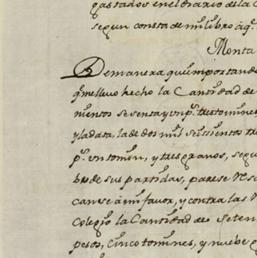 gastados en el Diario de la C
segun consta de mi libro à q.
Monta
De manera que importando
q.e llevo hecho la Cantidad de
nientos sesenta y un p.s tres tomines
y la data, la de dos mil seiscientos tre
p.s un tomin, y tres granos, segu
bro de sus partidas, parese
canse à mi favor, y contra las
Colegio la Cantidad de seten
pesos, cinco tomines, y nuebe g